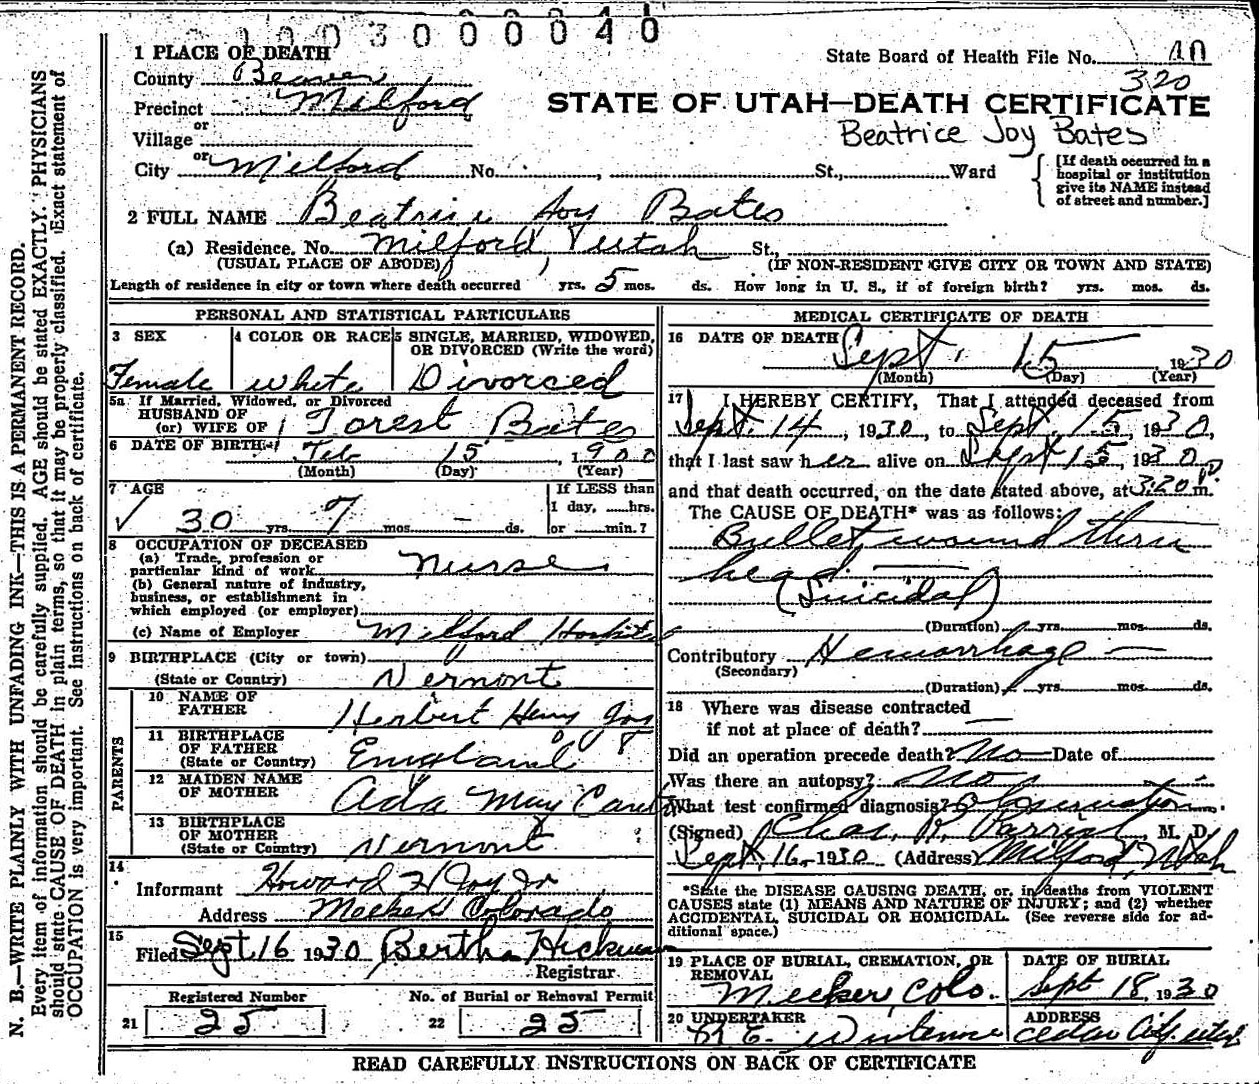 1003000040
1 PLACE OF DEATH
State Board of Health File No. 40
County Beaver
320
Precinct Milford
STATE OF UTAH—DEATH CERTIFICATE
Beatrice Joy Bates
Village or
City or Milford No. , St., Ward
[If death occurred in a hospital or institution give its NAME instead of street and number.]
2 FULL NAME Beatrice Joy Bates
(a) Residence. No. Milford, Utah St.,
(USUAL PLACE OF ABODE) (IF NON-RESIDENT GIVE CITY OR TOWN AND STATE)
Length of residence in city or town where death occurred yrs. 5 mos. ds. How long in U. S., if of foreign birth? yrs. mos. ds.
PERSONAL AND STATISTICAL PARTICULARS
3 SEX 4 COLOR OR RACE 5 SINGLE, MARRIED, WIDOWED,
OR DIVORCED (Write the word)
Female white Divorced
5a If Married, Widowed, or Divorced
HUSBAND OF
(or) WIFE OF Forest Bates
6 DATE OF BIRTH Feb 15, 1900
(Month) (Day) (Year)
7 AGE If LESS than
1 day, hrs.
30 yrs. 7 mos. - ds. or min.?
8 OCCUPATION OF DECEASED
(a) Trade, profession or
particular kind of work Nurse
(b) General nature of industry,
business, or establishment in
which employed (or employer)
(c) Name of Employer Milford Hospital
9 BIRTHPLACE (City or town)
(State or Country) Vermont
PARENTS
10 NAME OF
FATHER Herbert Henry Joy
11 BIRTHPLACE
OF FATHER
(State or Country) England
12 MAIDEN NAME
OF MOTHER Ada May
13 BIRTHPLACE
OF MOTHER
(State or Country) Vermont
14
Informant Howard H Joy Jr
Address Meeker Colorado
15
Filed Sept 16 1930 Bertha Hickman
Registrar
Registered Number No. of Burial or Removal Permit
21 25 22 25
MEDICAL CERTIFICATE OF DEATH
16 DATE OF DEATH Sept. 15 1930
(Month) (Day) (Year)
17 I HEREBY CERTIFY, That I attended deceased from
Sept. 14, 1930, to Sept. 15, 1930,
that I last saw her alive on Sept 15, 1930
and that death occurred, on the date stated above, at 3:20 P m.
The CAUSE OF DEATH* was as follows:
Bullet wound thru
head —
(Suicidal)
(Duration) yrs. mos. ds.
Contributory Hemorrhage —
(Secondary)
(Duration) yrs. mos. ds.
18 Where was disease contracted
if not at place of death? —
Did an operation precede death? No Date of
Was there an autopsy? No
What test confirmed diagnosis? Observation
(Signed) Chas. R. Parrish, M. D.
Sept. 16, 1930 (Address) Milford, Utah
*State the DISEASE CAUSING DEATH, or, in deaths from VIOLENT
CAUSES state (1) MEANS AND NATURE OF INJURY; and (2) whether
ACCIDENTAL, SUICIDAL OR HOMICIDAL. (See reverse side for ad-
ditional space.)
19 PLACE OF BURIAL, CREMATION, OR DATE OF BURIAL
REMOVAL
Meeker Colo. Sept 18, 1930
20 UNDERTAKER ADDRESS
Cedar City, Utah
READ CAREFULLY INSTRUCTIONS ON BACK OF CERTIFICATE
N. B.—WRITE PLAINLY WITH UNFADING INK—THIS IS A PERMANENT RECORD.
Every item of information should be carefully supplied. AGE should be stated EXACTLY. PHYSICIANS
should state CAUSE OF DEATH in plain terms, so that it may be properly classified. Exact statement of
OCCUPATION is very important. See instructions on back of certificate.